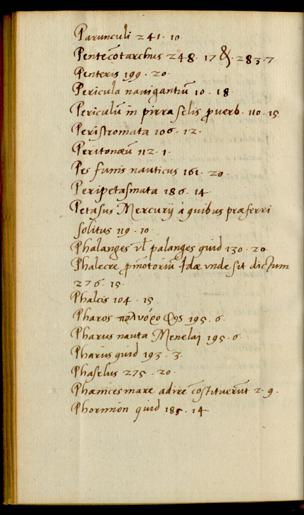 Parunculi 241. 10
Pentecotarchus 248. 17 &. 283. 7
Penteris 199. 20.
Pericula nauigantiũ 10. 18
Periculũ in pirra selis puerb. 110. 15
Peristromata 106. 12.
Peritonæũ 112. 1.
Pes funis nauticus 161. 20.
Peripetasmata 186. 14
Petasus Mercurij à quibus præferri
solitus 119. 10.
Phalanges vł palanges quid 130. 20
Phalecre pmõtoriũ Idæ vnde sit dictum
276. 15.
Phalcis 104. 15.
Pharos 195. 6.
Pharus nauta Menelai 195. 6.
Pharius quid 193. 3.
Phaselus 275. 20.
Phœnices mare adire cõstituerũt 2. 9.
Phormion quid 185. 14.